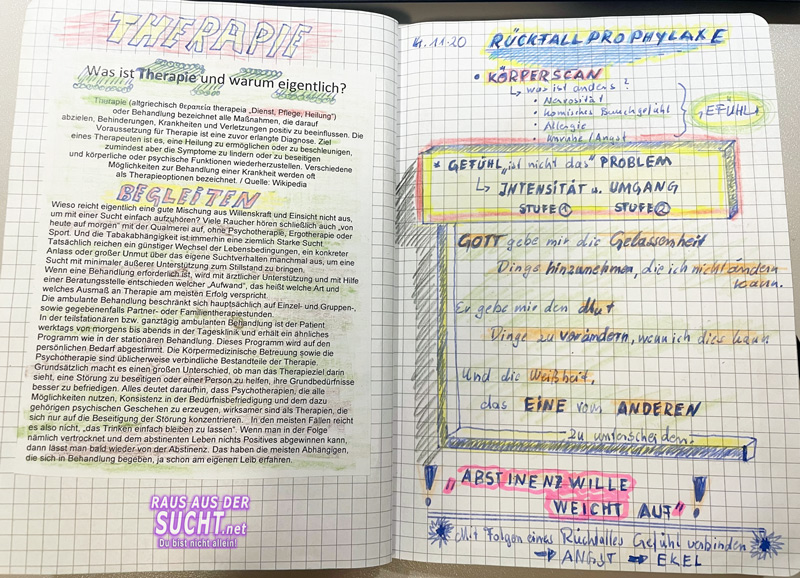 THERAPIE
Was ist Therapie und warum eigentlich?
Therapie (altgriechisch θεραπεία therapeia „Dienst, Pflege, Heilung“)
oder Behandlung bezeichnet alle Maßnahmen, die darauf
abzielen, Behinderungen, Krankheiten und Verletzungen positiv zu beeinflussen. Die
Voraussetzung für Therapie ist eine zuvor erlangte Diagnose. Ziel
eines Therapeuten ist es, eine Heilung zu ermöglichen oder zu beschleunigen,
zumindest aber die Symptome zu lindern oder zu beseitigen
und körperliche oder psychische Funktionen wiederherzustellen. Verschiedene
Möglichkeiten zur Behandlung einer Krankheit werden oft
als Therapieoptionen bezeichnet. / Quelle: Wikipedia
BEGLEITEN
Wieso reicht eigentlich eine gute Mischung aus Willenskraft und Einsicht nicht aus,
um mit einer Sucht einfach aufzuhören? Viele Raucher hören schließlich auch „von
heute auf morgen“ mit der Qualmerei auf, ohne Psychotherapie, Ergotherapie oder
Sport. Und die Tabakabhängigkeit ist immerhin eine ziemlich starke Sucht.
Tatsächlich reichen ein günstiger Wechsel der Lebensbedingungen, ein konkreter
Anlass oder großer Unmut über das eigene Suchtverhalten manchmal aus, um eine
Sucht mit minimaler äußerer Unterstützung zum Stillstand zu bringen.
Wenn eine Behandlung erforderlich ist, wird mit ärztlicher Unterstützung und mit Hilfe
einer Beratungsstelle entschieden welcher „Aufwand“, das heißt welche Art und
welches Ausmaß an Therapie am meisten Erfolg verspricht.
Die ambulante Behandlung beschränkt sich hauptsächlich auf Einzel- und Gruppen-,
sowie gegebenenfalls Partner- oder Familientherapiestunden.
In der teilstationären bzw. ganztägig ambulanten Behandlung ist der Patient
werktags von morgens bis abends in der Tagesklinik und erhält ein ähnliches
Programm wie in der stationären Behandlung. Dieses Programm wird auf den
persönlichen Bedarf abgestimmt. Die Körpermedizinische Betreuung sowie die
Psychotherapie sind üblicherweise verbindliche Bestandteile der Therapie.
Grundsätzlich macht es einen großen Unterschied, ob man das Therapieziel darin
sieht, eine Störung zu beseitigen oder einer Person zu helfen, ihre Grundbedürfnisse
besser zu befriedigen. Alles deutet daraufhin, dass Psychotherapien, die alle
Möglichkeiten nutzen, Konsistenz in der Bedürfnisbefriedigung und dem dazu
gehörigen psychischen Geschehen zu erzeugen, wirksamer sind als Therapien, die
sich nur auf die Beseitigung der Störung konzentrieren. In den meisten Fällen reicht
es also nicht, „das Trinken einfach bleiben zu lassen“. Wenn man in der Folge
nämlich vertrocknet und dem abstinenten Leben nichts Positives abgewinnen kann,
dann lässt man bald wieder von der Abstinenz. Das haben die meisten Abhängigen,
die sich in Behandlung begeben, ja schon am eigenen Leib erfahren.
RAUS AUS DER
SUCHT.net
Du bist nicht allein!
11.20 RÜCKFALLPROPHYLAXE
• KÖRPERSCAN
↳ was ist anders?
• Nervosität
• komisches Bauchgefühl
• Allergie
• Unruhe / Angst
„GEFÜHL“
* GEFÜHL „ist nicht das“ PROBLEM
↳ INTENSITÄT u. UMGANG
STUFE ① STUFE ②
GOTT gebe mir die Gelassenheit
Dinge hinzunehmen, die ich nicht ändern
kann.
Er gebe mir den Mut
Dinge zu verändern, wenn ich dies kann
Und die Weißheit,
das EINE vom ANDEREN
zu unterscheiden.
! „ABSTINENZWILLE !
WEICHT AUF“
Mit Folgen eines Rückfalles Gefühl verbinden
➔ ANGST ➔ EKEL